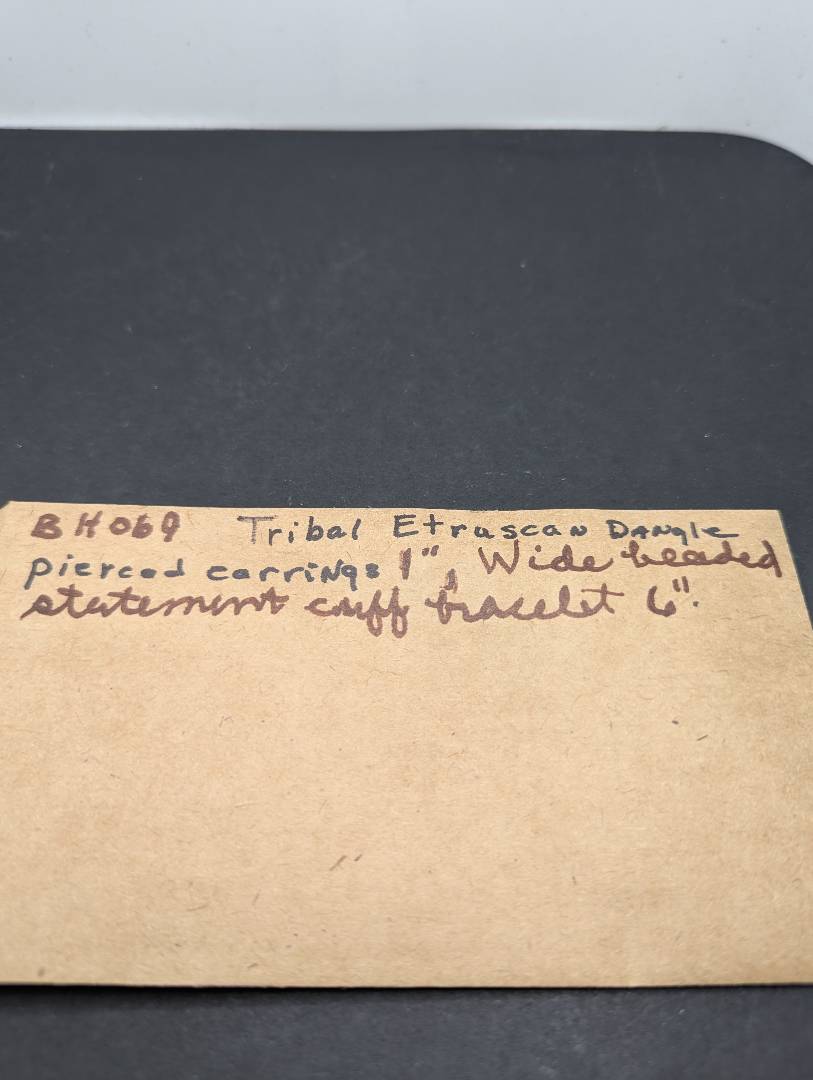 BH069 Tribal Etruscan Dangle
pierced earrings 1", Wide beaded
statement cuff bracelet 6".